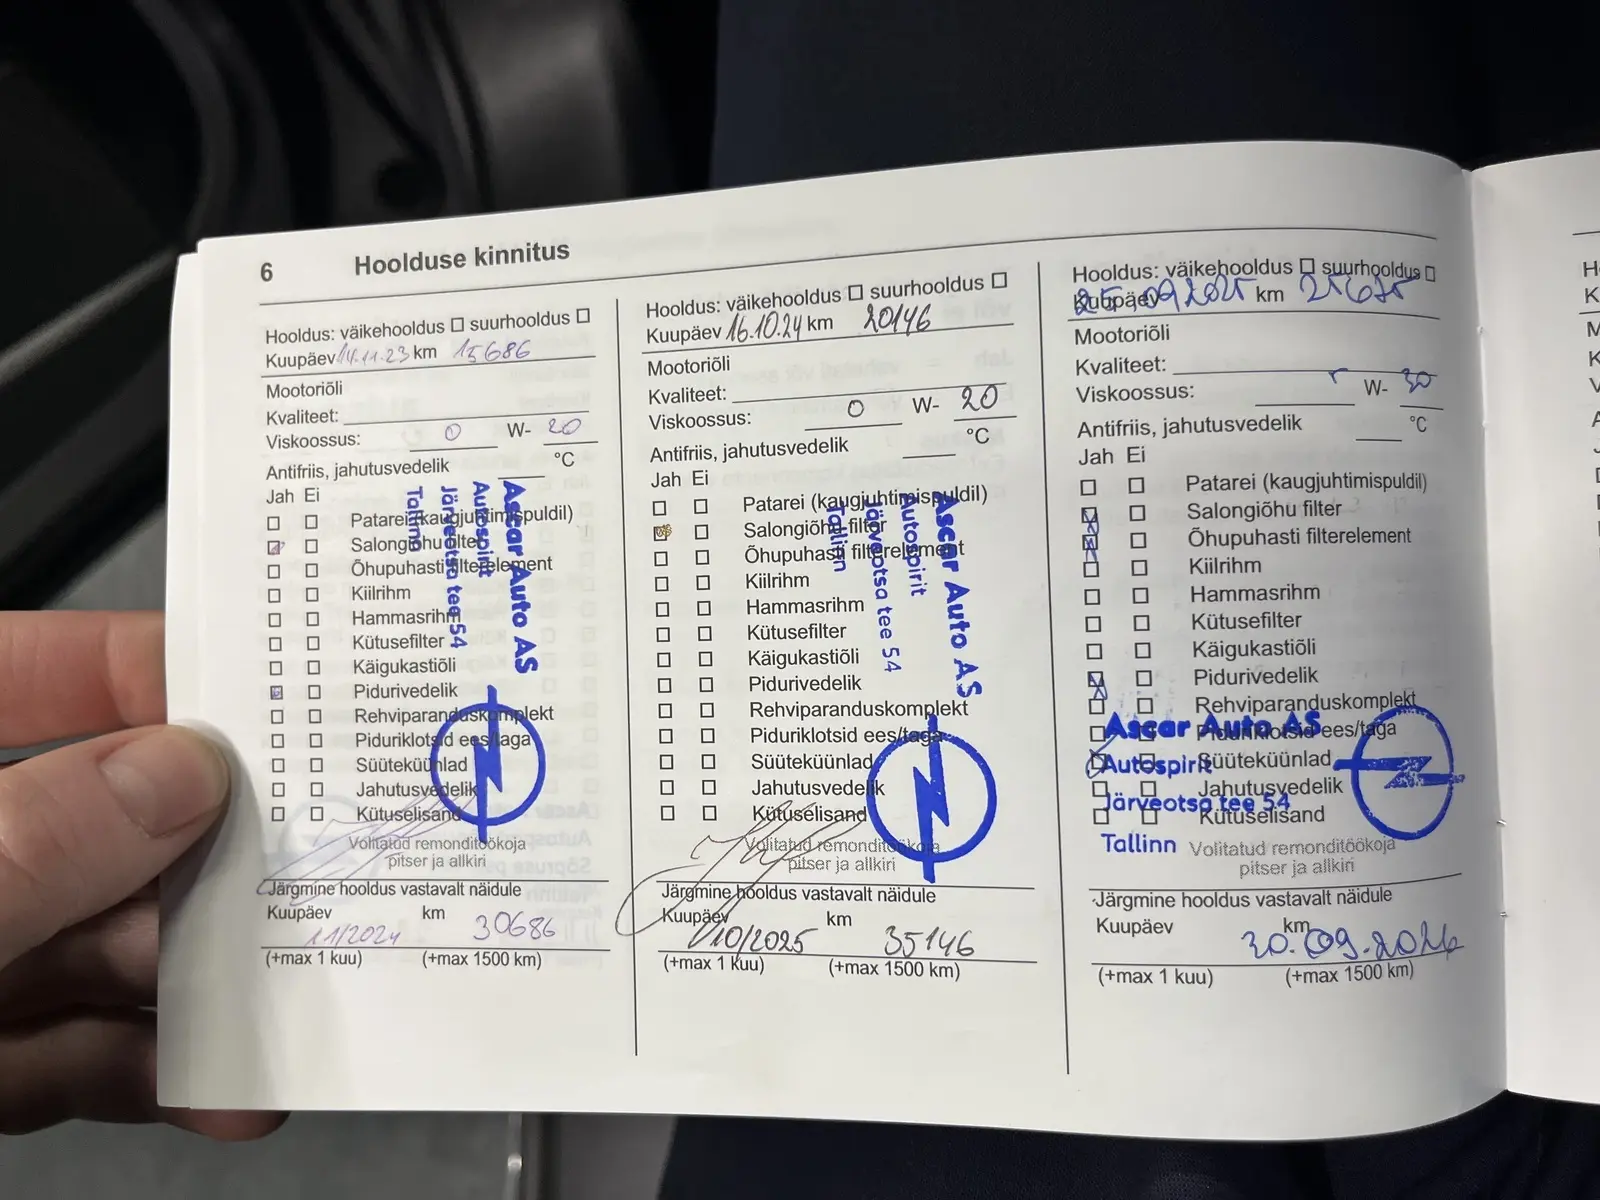 6 Hoolduse kinnitus
Hooldus: väikehooldus suurhooldus
Kuupäev 14.11.23 km 15686
Mootoriõli
Kvaliteet:
Viskoossus: 0 W- 20
Antifriis, jahutusvedelik °C
Jah Ei
Patarei (kaugjuhtimispuldil)
Salongiõhu filter
Õhupuhasti filterelement
Kiilrihm
Hammasrihm
Kütusefilter
Käigukastiõli
Pidurivedelik
Rehviparanduskomplekt
Piduriklotsid ees/taga
Süüteküünlad
Jahutusvedelik
Kütuselisand
Ascar Auto AS
Autospirit
Järveotsa tee 54
Tallinn
Volitatud remonditöökoja
pitser ja allkiri
Järgmine hooldus vastavalt näidule
Kuupäev km
11/2024 30686
(+max 1 kuu) (+max 1500 km)
Hooldus: väikehooldus suurhooldus
Kuupäev 16.10.24 km 20146
Mootoriõli
Kvaliteet:
Viskoossus: 0 W- 20
Antifriis, jahutusvedelik °C
Jah Ei
Patarei (kaugjuhtimispuldil)
Salongiõhu filter
Õhupuhasti filterelement
Kiilrihm
Hammasrihm
Kütusefilter
Käigukastiõli
Pidurivedelik
Rehviparanduskomplekt
Piduriklotsid ees/taga
Süüteküünlad
Jahutusvedelik
Kütuselisand
Ascar Auto AS
Autospirit
Järveotsa tee 54
Tallinn
Volitatud remonditöökoja
pitser ja allkiri
Järgmine hooldus vastavalt näidule
Kuupäev km
10/2025 35146
(+max 1 kuu) (+max 1500 km)
Hooldus: väikehooldus suurhooldus
Kuupäev 25.09.2025 km 25675
Mootoriõli
Kvaliteet:
Viskoossus: W- 30
Antifriis, jahutusvedelik °C
Jah Ei
Patarei (kaugjuhtimispuldil)
Salongiõhu filter
Õhupuhasti filterelement
Kiilrihm
Hammasrihm
Kütusefilter
Käigukastiõli
Pidurivedelik
Rehviparanduskomplekt
Piduriklotsid ees/taga
Süüteküünlad
Jahutusvedelik
Kütuselisand
Ascar Auto AS
Autospirit
Järveotsa tee 54
Tallinn
Volitatud remonditöökoja
pitser ja allkiri
Järgmine hooldus vastavalt näidule
Kuupäev km
30.09.2026
(+max 1 kuu) (+max 1500 km)